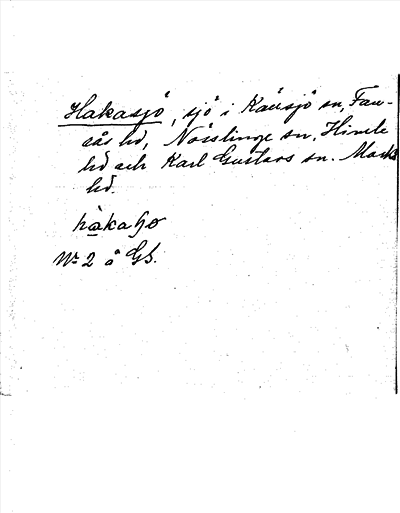 Hakasjö, sjö i Källsjö sn, Fau-
rås hd, Nösslinge sn, Himle
hd och Karl Gustavs sn. Marks
hd.
hàkaɧø
Nr 2 å GS.